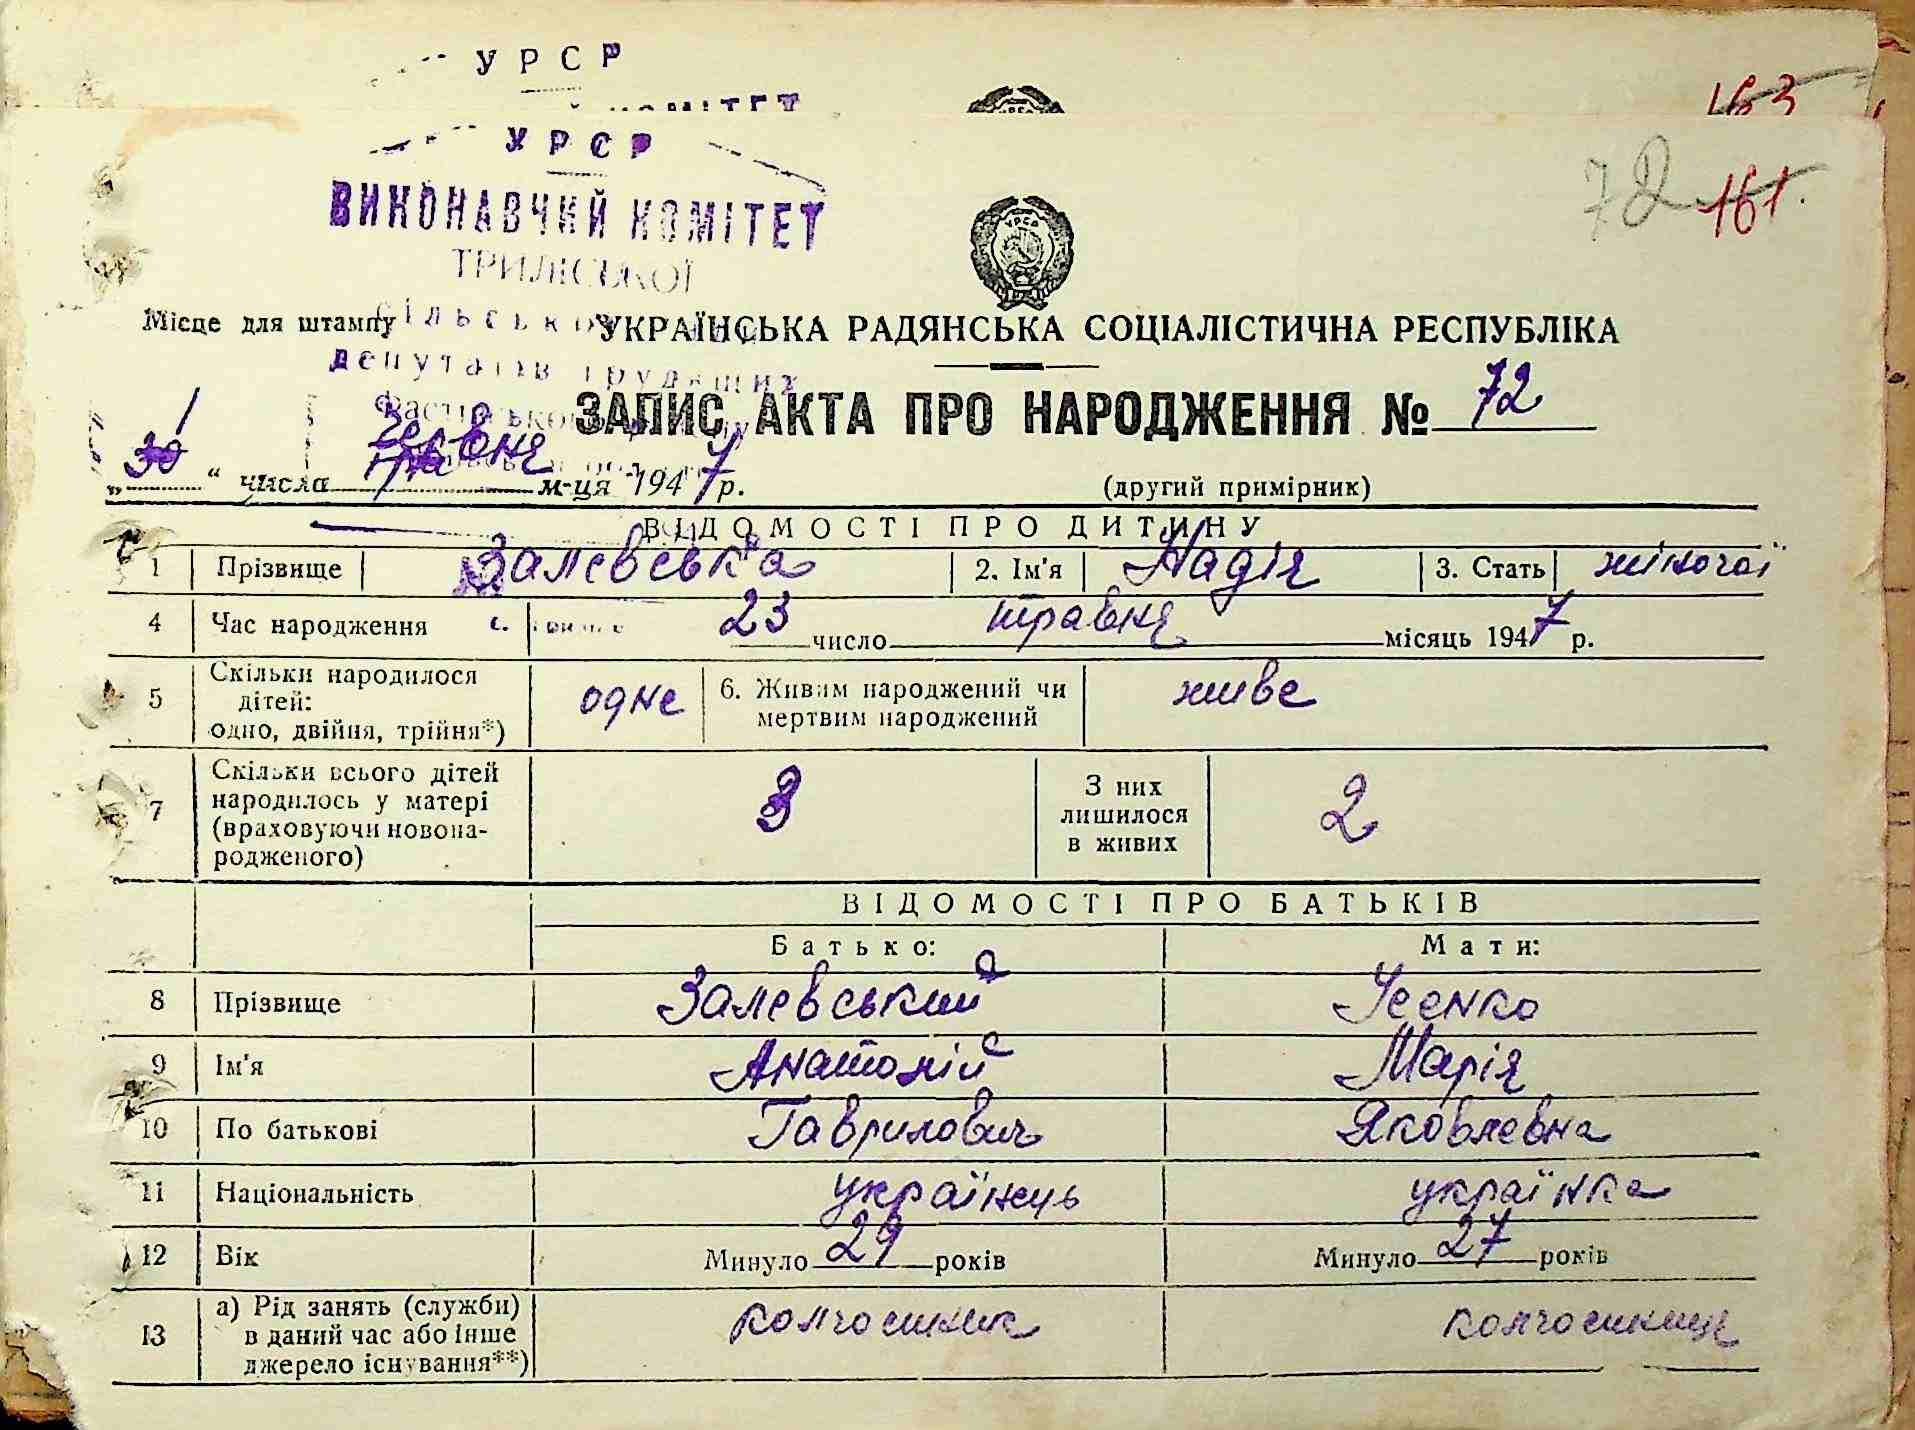 УРСР
КОМІТЕТ
163
УРСР
ВИКОНАВЧИЙ КОМІТЕТ
ТРИЛІСЬКОЇ
72 161.
УРСР
Місце для штампу сільської
УКРАЇНСЬКА РАДЯНСЬКА СОЦІАЛІСТИЧНА РЕСПУБЛІКА
депутатів трудящих
ЗАПИС АКТА ПРО НАРОДЖЕННЯ № 72
„30“ 1 числа червня м-ця 1947 р.
(другий примірник)
ВІДОМОСТІ ПРО ДИТИНУ
1 Прізвище Залевська 2. Ім'я Надія 3. Стать жіночої
4 Час народження 23 число травня місяць 1947 р.
5 Скільки народилося дітей: одно, двійня, трійня*) одне 6. Живим народжений чи мертвим народжений живе
7 Скільки всього дітей народилось у матері (враховуючи новонародженого) 3 З них лишилося в живих 2
ВІДОМОСТІ ПРО БАТЬКІВ
Батько: Мати:
8 Прізвище Залевський Усенко
9 Ім'я Анатолій Марія
10 По батькові Гаврилович Яковлевна
11 Національність українець українка
12 Вік Минуло 29 років Минуло 27 років
13 а) Рід занять (служби) в даний час або інше джерело існування**) колгоспник колгоспниця